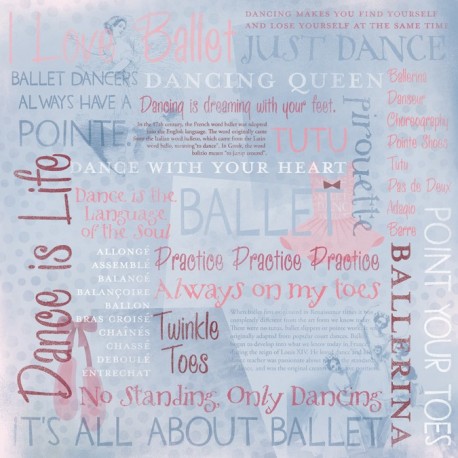 I Love Ballet
DANCING MAKES YOU FIND YOURSELF
AND LOSE YOURSELF AT THE SAME TIME
JUST DANCE
BALLET DANCERS
ALWAYS HAVE A
POINTE.
DANCING QUEEN
Dancing is dreaming with your feet.
In the 17th century, the French word ballet was adopted
into the English language. The word originally came
from the Italian word balletto, which came from the Latin
word ballo, meaning "to dance". In Greek, the word
ballizo means "to jump around".
TUTU
Pirouette
Ballerina
Danseur
Choreography
Pointe Shoes
Tutu
Pas de Deux
Adagio
Barre
DANCE WITH YOUR HEART
Dance is Life
Dance is the
Language
of the Soul
BALLET
ALLONGÉ
ASSEMBLÉ
BALANCÉ
BALANÇOIRE
BALLON
BRAS CROISÉ
CHAÎNÉS
CHASSÉ
DEBOULÉ
ENTRECHAT
Practice Practice Practice
Always on my toes
Twinkle
Toes
BALLERINA
POINT YOUR TOES
No Standing, Only Dancing
IT'S ALL ABOUT BALLET